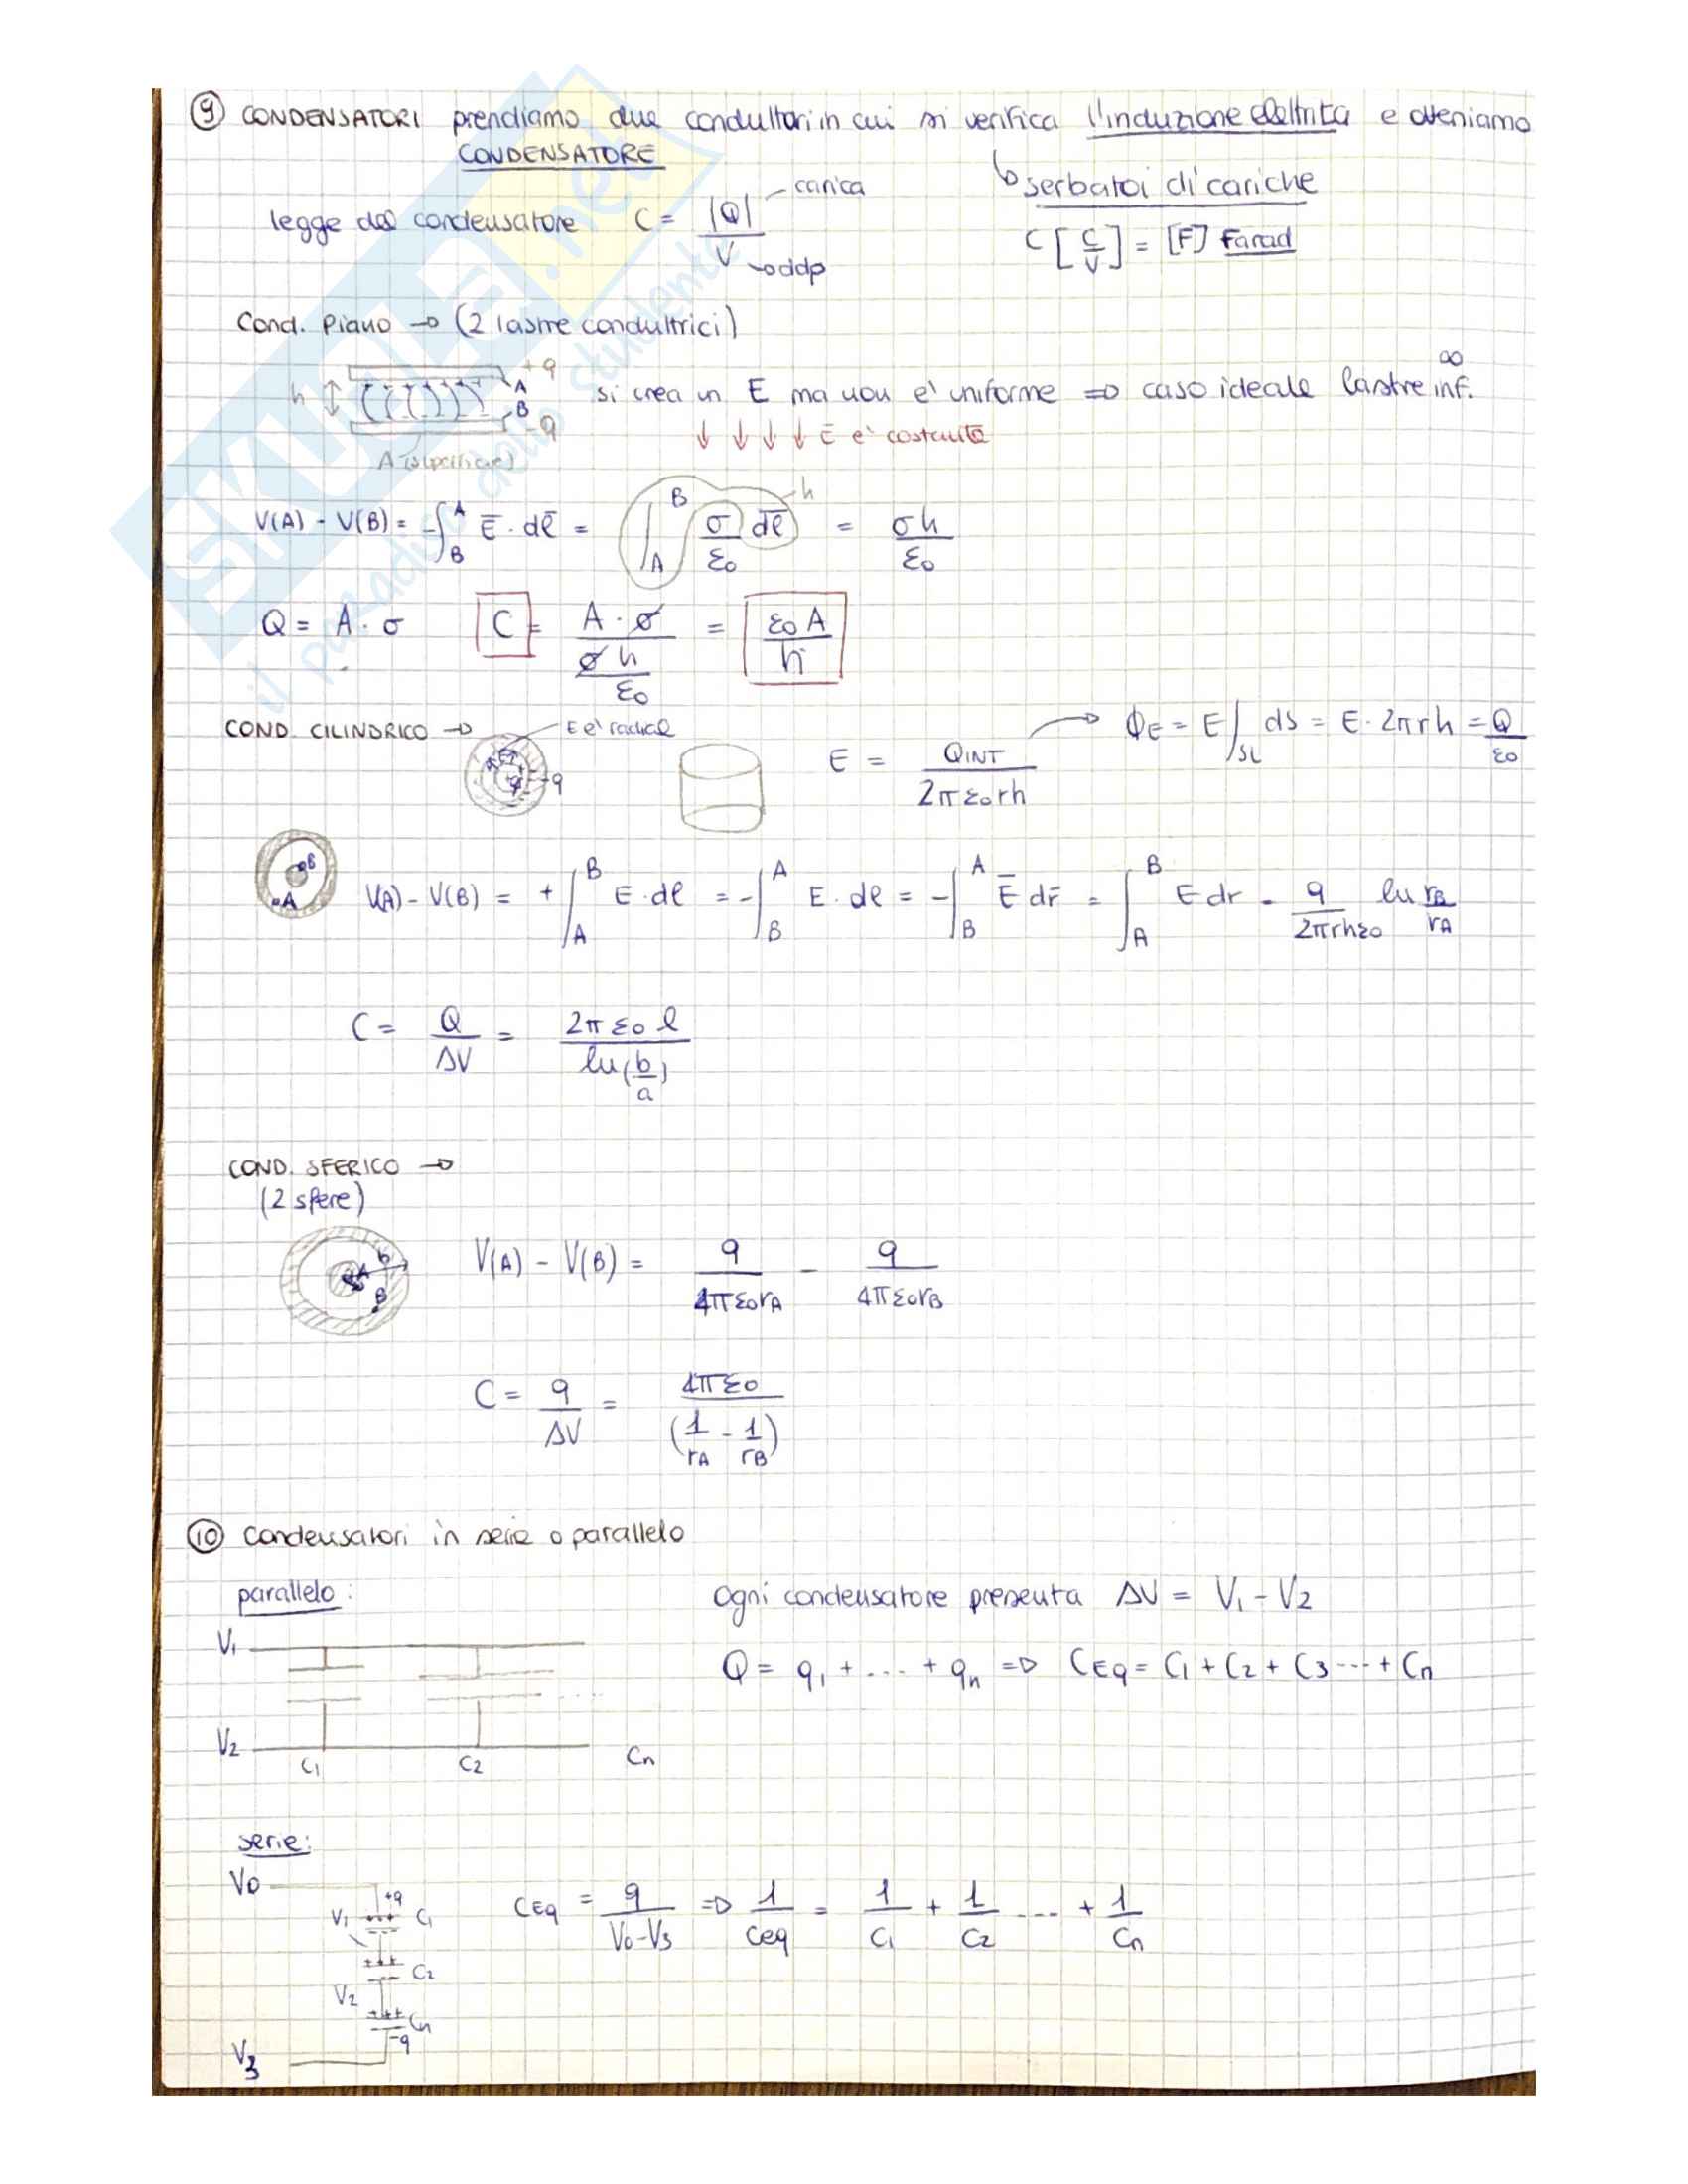 ⑨ CONDENSATORI prendiamo due conduttori in cui si verifica l'induzione elettrica e otteniamo
CONDENSATORE
↳ serbatoi di cariche
legge del condensatore C = |Q| / V
carica
ddp
C [C/V] = [F] Farad
Cond. Piano → (2 lastre conduttrici)
+q
h A
B
-q
A (superficie)
si crea un E ma non e' uniforme ⇒ caso ideale lastre inf. ∞
↓ ↓ ↓ ↓ E e' costante
V(A) - V(B) = -∫_B^A E̅ · dl̅ = ∫_A^B σ/ε0 dl̅ = σh/ε0
h
Q = A · σ C = A · σ / (σ h / ε0) = ε0 A / h
COND. CILINDRICO → E e' radiale
-q
E = QINT / 2π ε0 r h → ϕE = E ∫_SL ds = E · 2π r h = Q/ε0
B
A
V(A) - V(B) = + ∫_A^B E · dl = - ∫_B^A E · dl = - ∫_B^A E̅ dr̅ = ∫_A^B E dr = q / 2πrhε0 ln rB/rA
C = Q/ΔV = 2π ε0 l / ln(b/a)
COND. SFERICO →
(2 sfere)
b
A
B
V(A) - V(B) = q / 4πε0rA - q / 4πε0rB
C = q/ΔV = 4πε0 / (1/rA - 1/rB)
⑩ Condensatori in serie o parallelo
parallelo:
Ogni condensatore presenta ΔV = V1 - V2
V1
Q = q1 + .... + qn ⇒ CEq = C1 + C2 + C3 ... + Cn
V2
C1 C2 Cn
serie:
V0
+q
V1 C1
CEq = q / V0-V3 ⇒ 1/Ceq = 1/C1 + 1/C2 .... + 1/Cn
C2
V2
Cn
-q
V3
SKUOLA.net
il paradiso dello studente